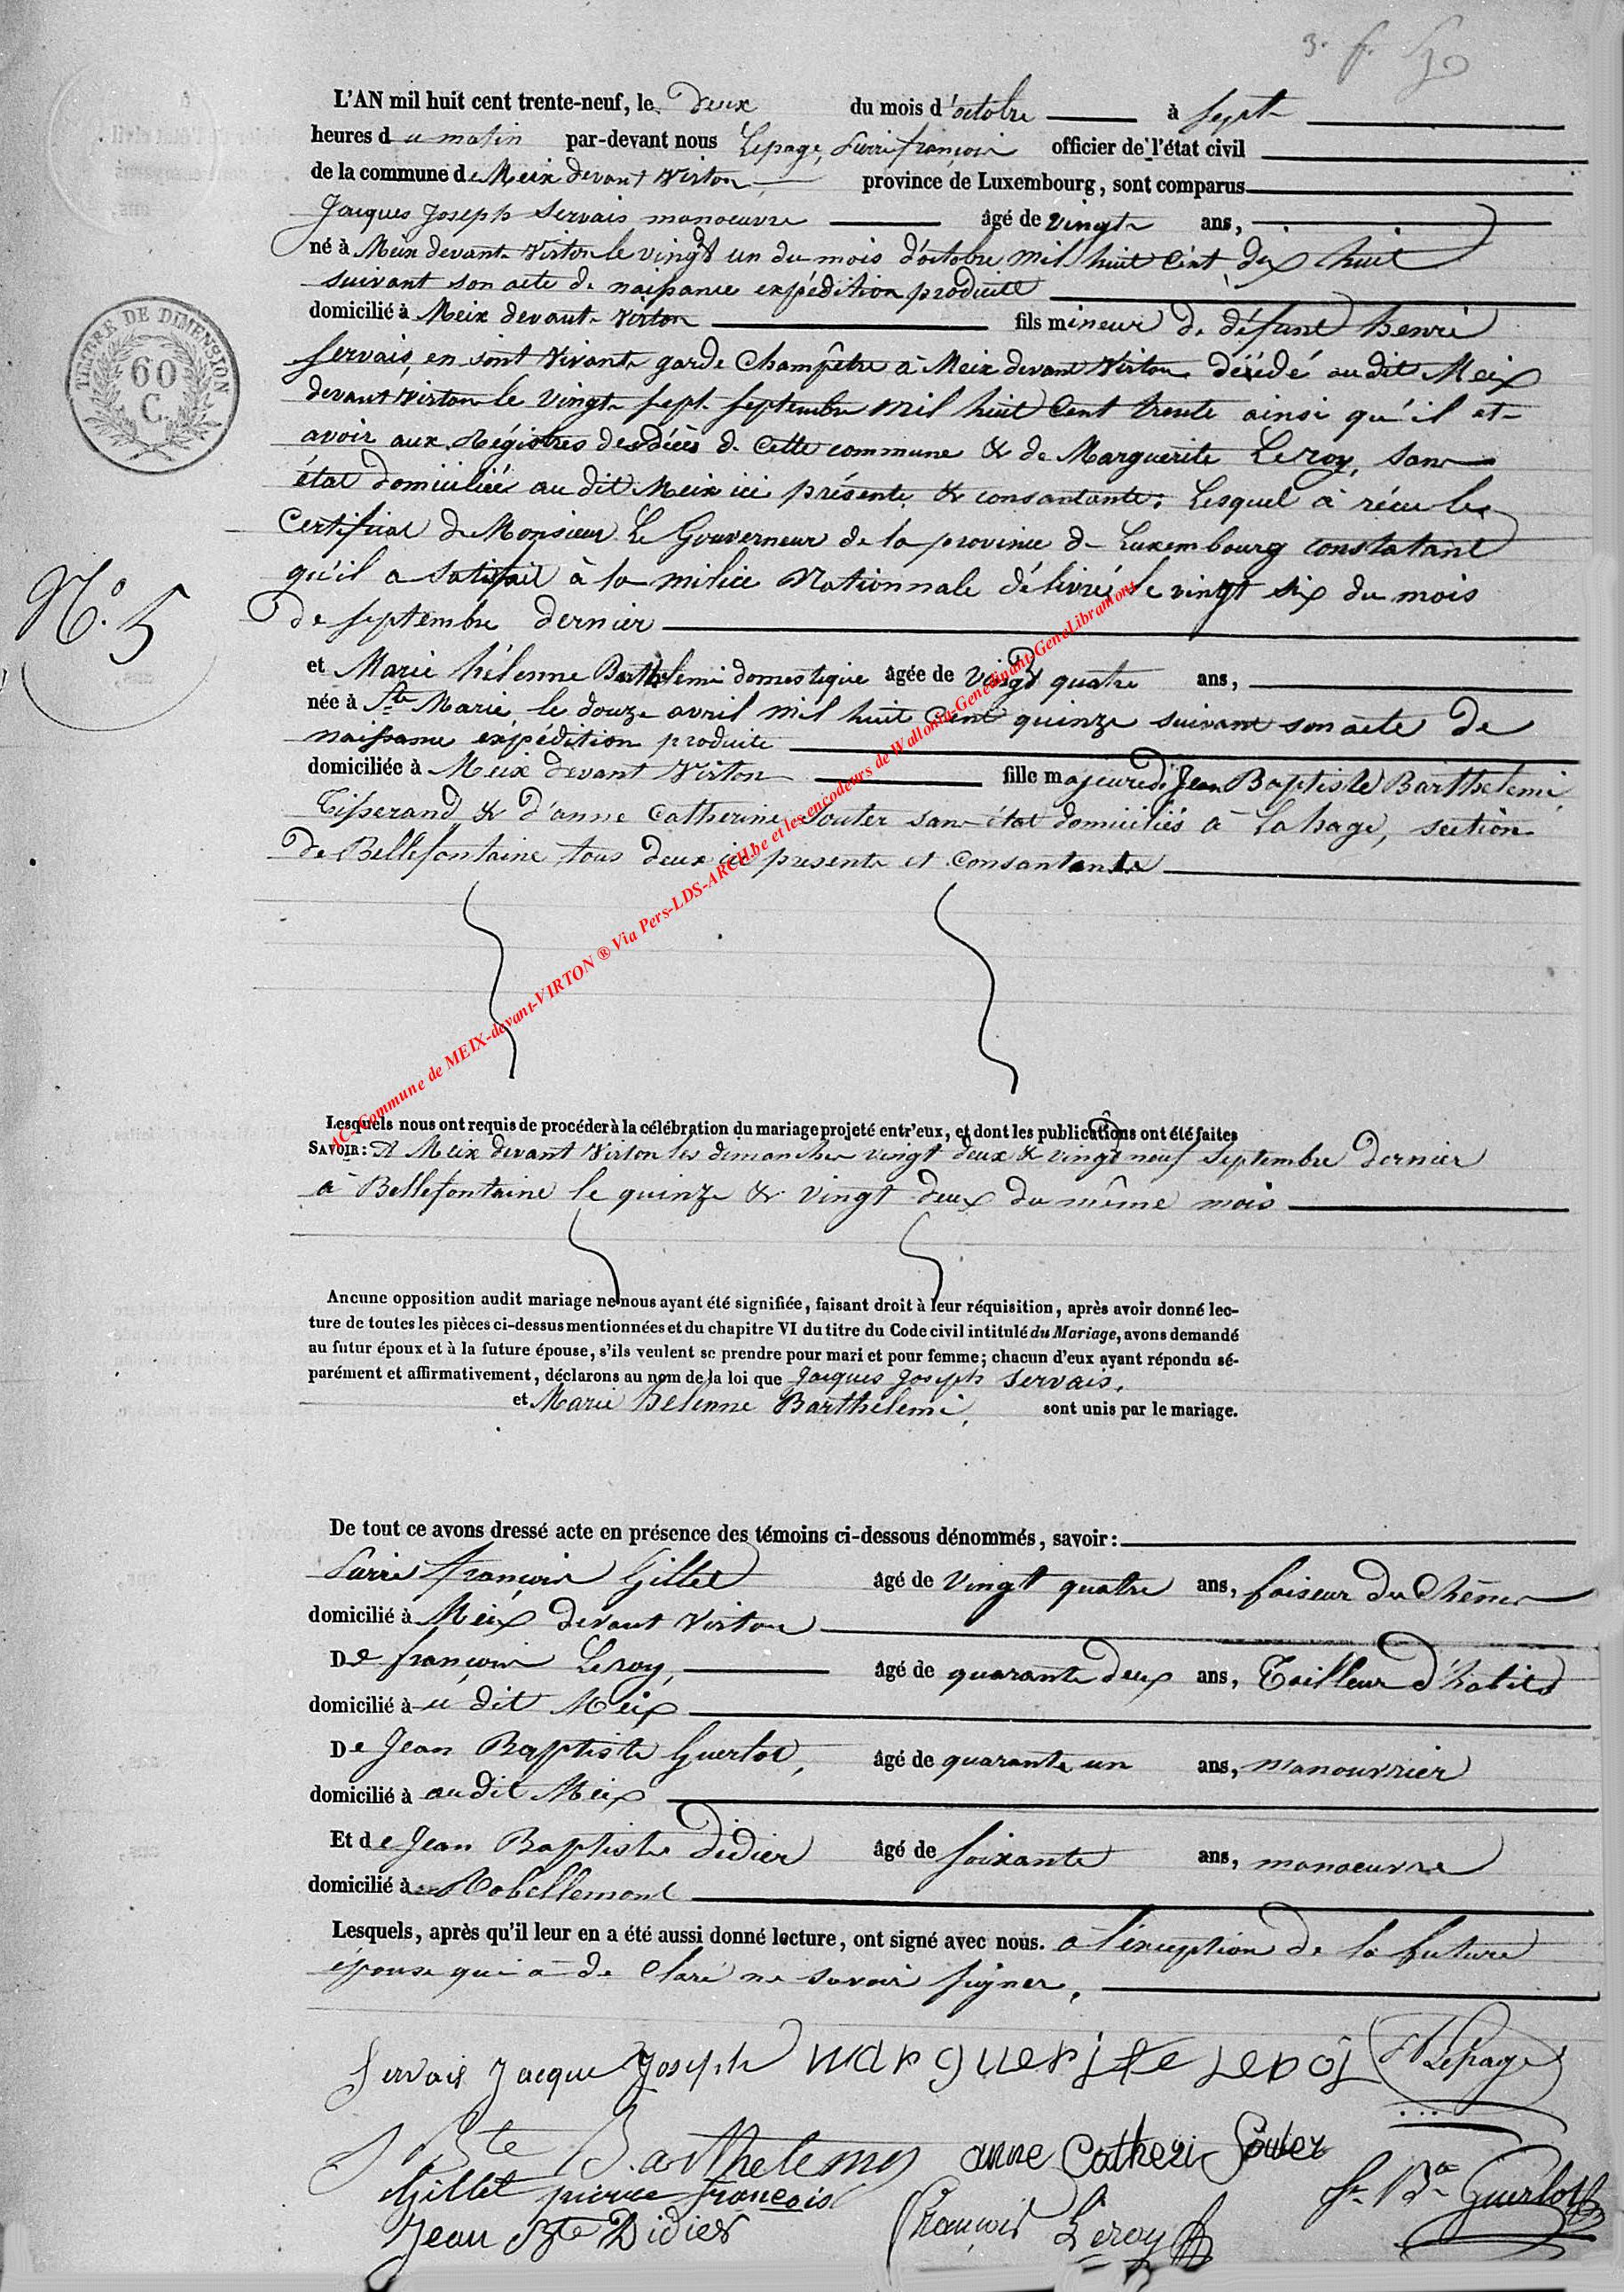 3. f. 50
L'AN mil huit cent trente-neuf, le deux du mois d'octobre à sept
heures du matin par-devant nous Lepage, Pierre françois officier de l'état civil
de la commune de Meix devant Virton province de Luxembourg, sont comparus
Jacques Joseph Servais manoeuvre âgé de vingt ans,
né à Meix devant Virton le vingt un du mois d'octobre mil huit cent dix huit
suivant son acte de naissance expédition produite
domicilié à Meix devant Virton fils mineur de défunt henri
Servais, en sont vivant garde Champêtre à Meix devant Virton décédé au dit Meix
devant Virton le vingt sept septembre mil huit Cent trente ainsi qu'il et
avoir aux Régistres des décès de Cette commune & de Marguerite Leroy, sans
état domiciliée au dit Meix ici présente & consantante; Lesquel à récu le
Certificat de Monsieur Le Gouverneur de la province de Luxembourg constatant
qu'il a satisfait à la milice Nationnale délivré le vingt six du mois
de septembre dernier
N.° 5
TIMBRE DE DIMENSION
60
C.
et Marie hélenne Barthelemi domestique âgée de vingt quatre ans,
née à Ste Marie, le douze avril mil huit Cent quinze suivant son acte de
naissance expédition produite
domiciliée à Meix devant Virton fille majeure de Jean Baptiste Barthelemi
Tisserand & d'anne Catherine Souter sans état domiciliés à Lahage, section
de Bellefontaine, tous deux ici présents et Consantants
AC- Commune de MEIX-devant-VIRTON ® Via Pers-LDS-ARCH.be et les encodeurs de Wallonia-Genedinant-GeneLibramont
Lesquels nous ont requis de procéder à la célébration du mariage projeté entr'eux, et dont les publications ont été faites
SAVOIR: A Meix devant Virton les dimanches vingt deux & vingt neuf Septembre dernier
à Bellefontaine le quinze & vingt deux du même mois
Aucune opposition audit mariage ne nous ayant été signifiée, faisant droit à leur réquisition, après avoir donné lec-
ture de toutes les pièces ci-dessus mentionnées et du chapitre VI du titre du Code civil intitulé du Mariage, avons demandé
au futur époux et à la future épouse, s'ils veulent se prendre pour mari et pour femme; chacun d'eux ayant répondu sé-
parément et affirmativement, déclarons au nom de la loi que Jacques Joseph Servais,
et Marie helenne Barthelemi, sont unis par le mariage.
De tout ce avons dressé acte en présence des témoins ci-dessous dénommés, savoir:
Pierre françois Gillet âgé de vingt quatre ans, faiseur du Chênes
domicilié à Meix devant Virton
De françois Leroy, âgé de quarante deux ans, Tailleur d'habits
domicilié à u dit Meix
De Jean Baptiste Guerlot, âgé de quarante un ans, manouvrier
domicilié à au dit Meix
Et de Jean Baptiste Didier âgé de soixante ans, manoeuvre
domicilié à Robellemont
Lesquels, après qu'il leur en a été aussi donné lecture, ont signé avec nous. à l'exception de la future
épouse qui à de Claré ne savoir signer.
Servais Jacque Joseph marguerite leroi Lepage
J Bte Barthelemy anne Catheri Souter
Gillet pierre francois J. Bte Guerlot
Jean Bte Didier François Leroy